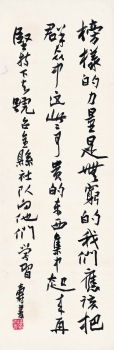 榜樣的力量是無窮的我們應該把
群众中这些可贵的东西集中起来再
堅持下去號召全縣社队向他們学習